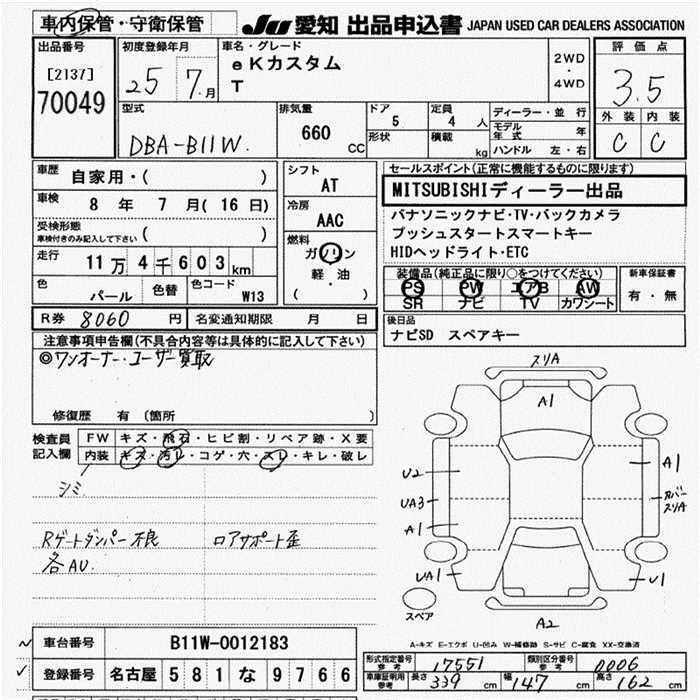 車内保管・守衛保管
JU 愛知 出品申込書 JAPAN USED CAR DEALERS ASSOCIATION
出品番号
[2137]
70049
初度登録年月
25 7.月
車名・グレード
eKカスタム
T
2WD
・
4WD
評価点
3.5
外装 内装
C C
型式
DBA-B11W.
排気量
660 CC
ドア 5
形状
定員 4 人
積載 kg
ディーラー・並行
モデル年式 年
ハンドル 左・右
車歴 自家用・( )
車検 8 年 7 月( 16 日)
受検形態
車検付きのみ記入して下さい ( )
走行 11万4千603km
色 パール 色替
色コード W13
シフト
AT
冷房
AAC
燃料
ガソリン
軽・油
( )
セールスポイント(正常に機能するものに限ります)
MITSUBISHIディーラー出品
パナソニックナビ・TV・バックカメラ
プッシュスタートスマートキー
HIDヘッドライト・ETC
装備品(純正品に限り○をつけてください)
PS PW エアB AW
SR ナビ TV カワシート
新車保証書
有・無
R券 8060 円 名変通知期限 月 日
後日品
ナビSD スペアキー
注意事項申告欄(不具合内容等は具体的に記入して下さい)
◎ワンオーナー・ユーザー買取
修復歴 有 〔箇所 〕
検査員
記入欄
FW キズ・飛石・ヒビ割・リペア跡・X要
内装 キズ・汚レ・コゲ・穴・スレ・キレ・破レ
シミ
Rゲートダンパー不良 ロアサポート歪
各AU.
スリA
A1
U2
A1
UA3
カバースリA
A1
UA1
U1
スペア
A2
A-キズ E-エクボ U-凹み W-補修跡 S-サビ C-腐食 XX-交換済
車台番号 B11W-0012183
登録番号 名古屋 581な9766
型式指定番号
参考
17551
類別区分番号
参考
0006
車庫証明用
参考
長さ 339 cm 幅 147 cm 高さ 162 cm